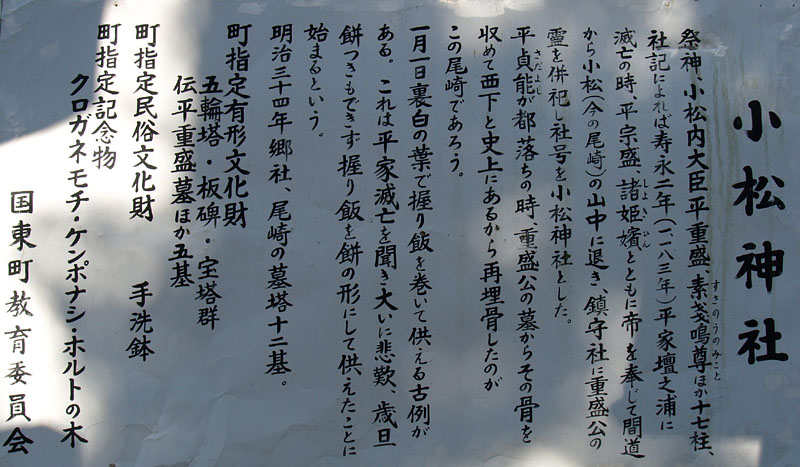 小松神社
祭神、小松内大臣平重盛、素戔鳴尊ほか十七柱、
すさのうのみこと
社記によれば寿永二年(一一八三年)平家壇之浦に
滅亡の時、平宗盛、諸姫嬪とともに帝を奉じて間道
しょよきひん
から小松(今の尾崎)の山中に退き、鎮守社に重盛公の
霊を併祀し社号を小松神社とした。
平貞能が都落ちの時、重盛公の墓からその骨を
さだよし
収めて西下と史上にあるから再埋骨したのが
この尾崎であろう。
一月一日裏白の葉で握り飯を巻いて供える古例が
ある。これは平家滅亡を聞き大いに悲歎、歳旦
餅つきもできず握り飯を餅の形にして供えたことに
始まるという。
明治三十四年郷社、尾崎の墓塔十二基。
町指定有形文化財
五輪塔・板碑・宝塔群
伝平重盛墓ほか五基
町指定民俗文化財 手洗鉢
町指定記念物
クロガネモチ・ケンポナシ・ホルトの木
国東町教育委員会